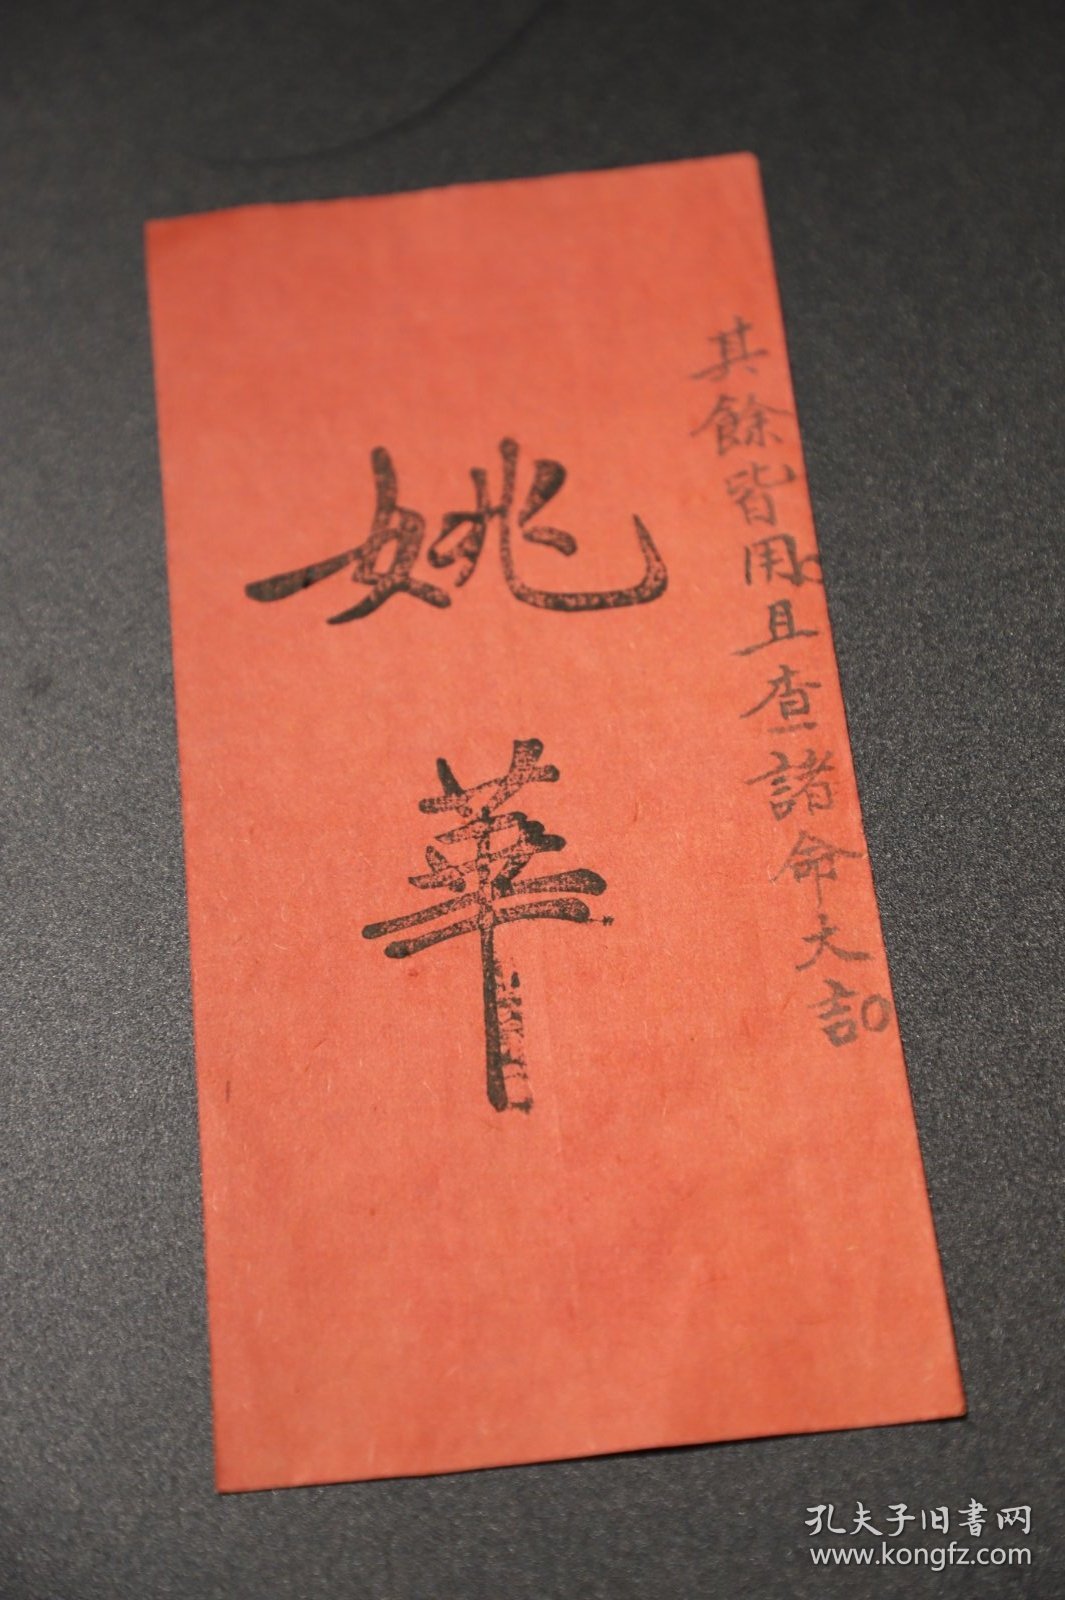 其餘皆用且查諸命大吉
姚華
孔夫子旧書网
www.kongfz.com